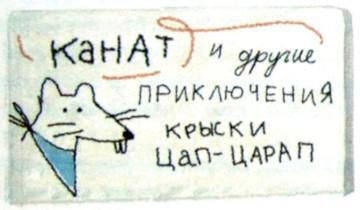 Канат и другие
приключения
крыски
Цап-Царап